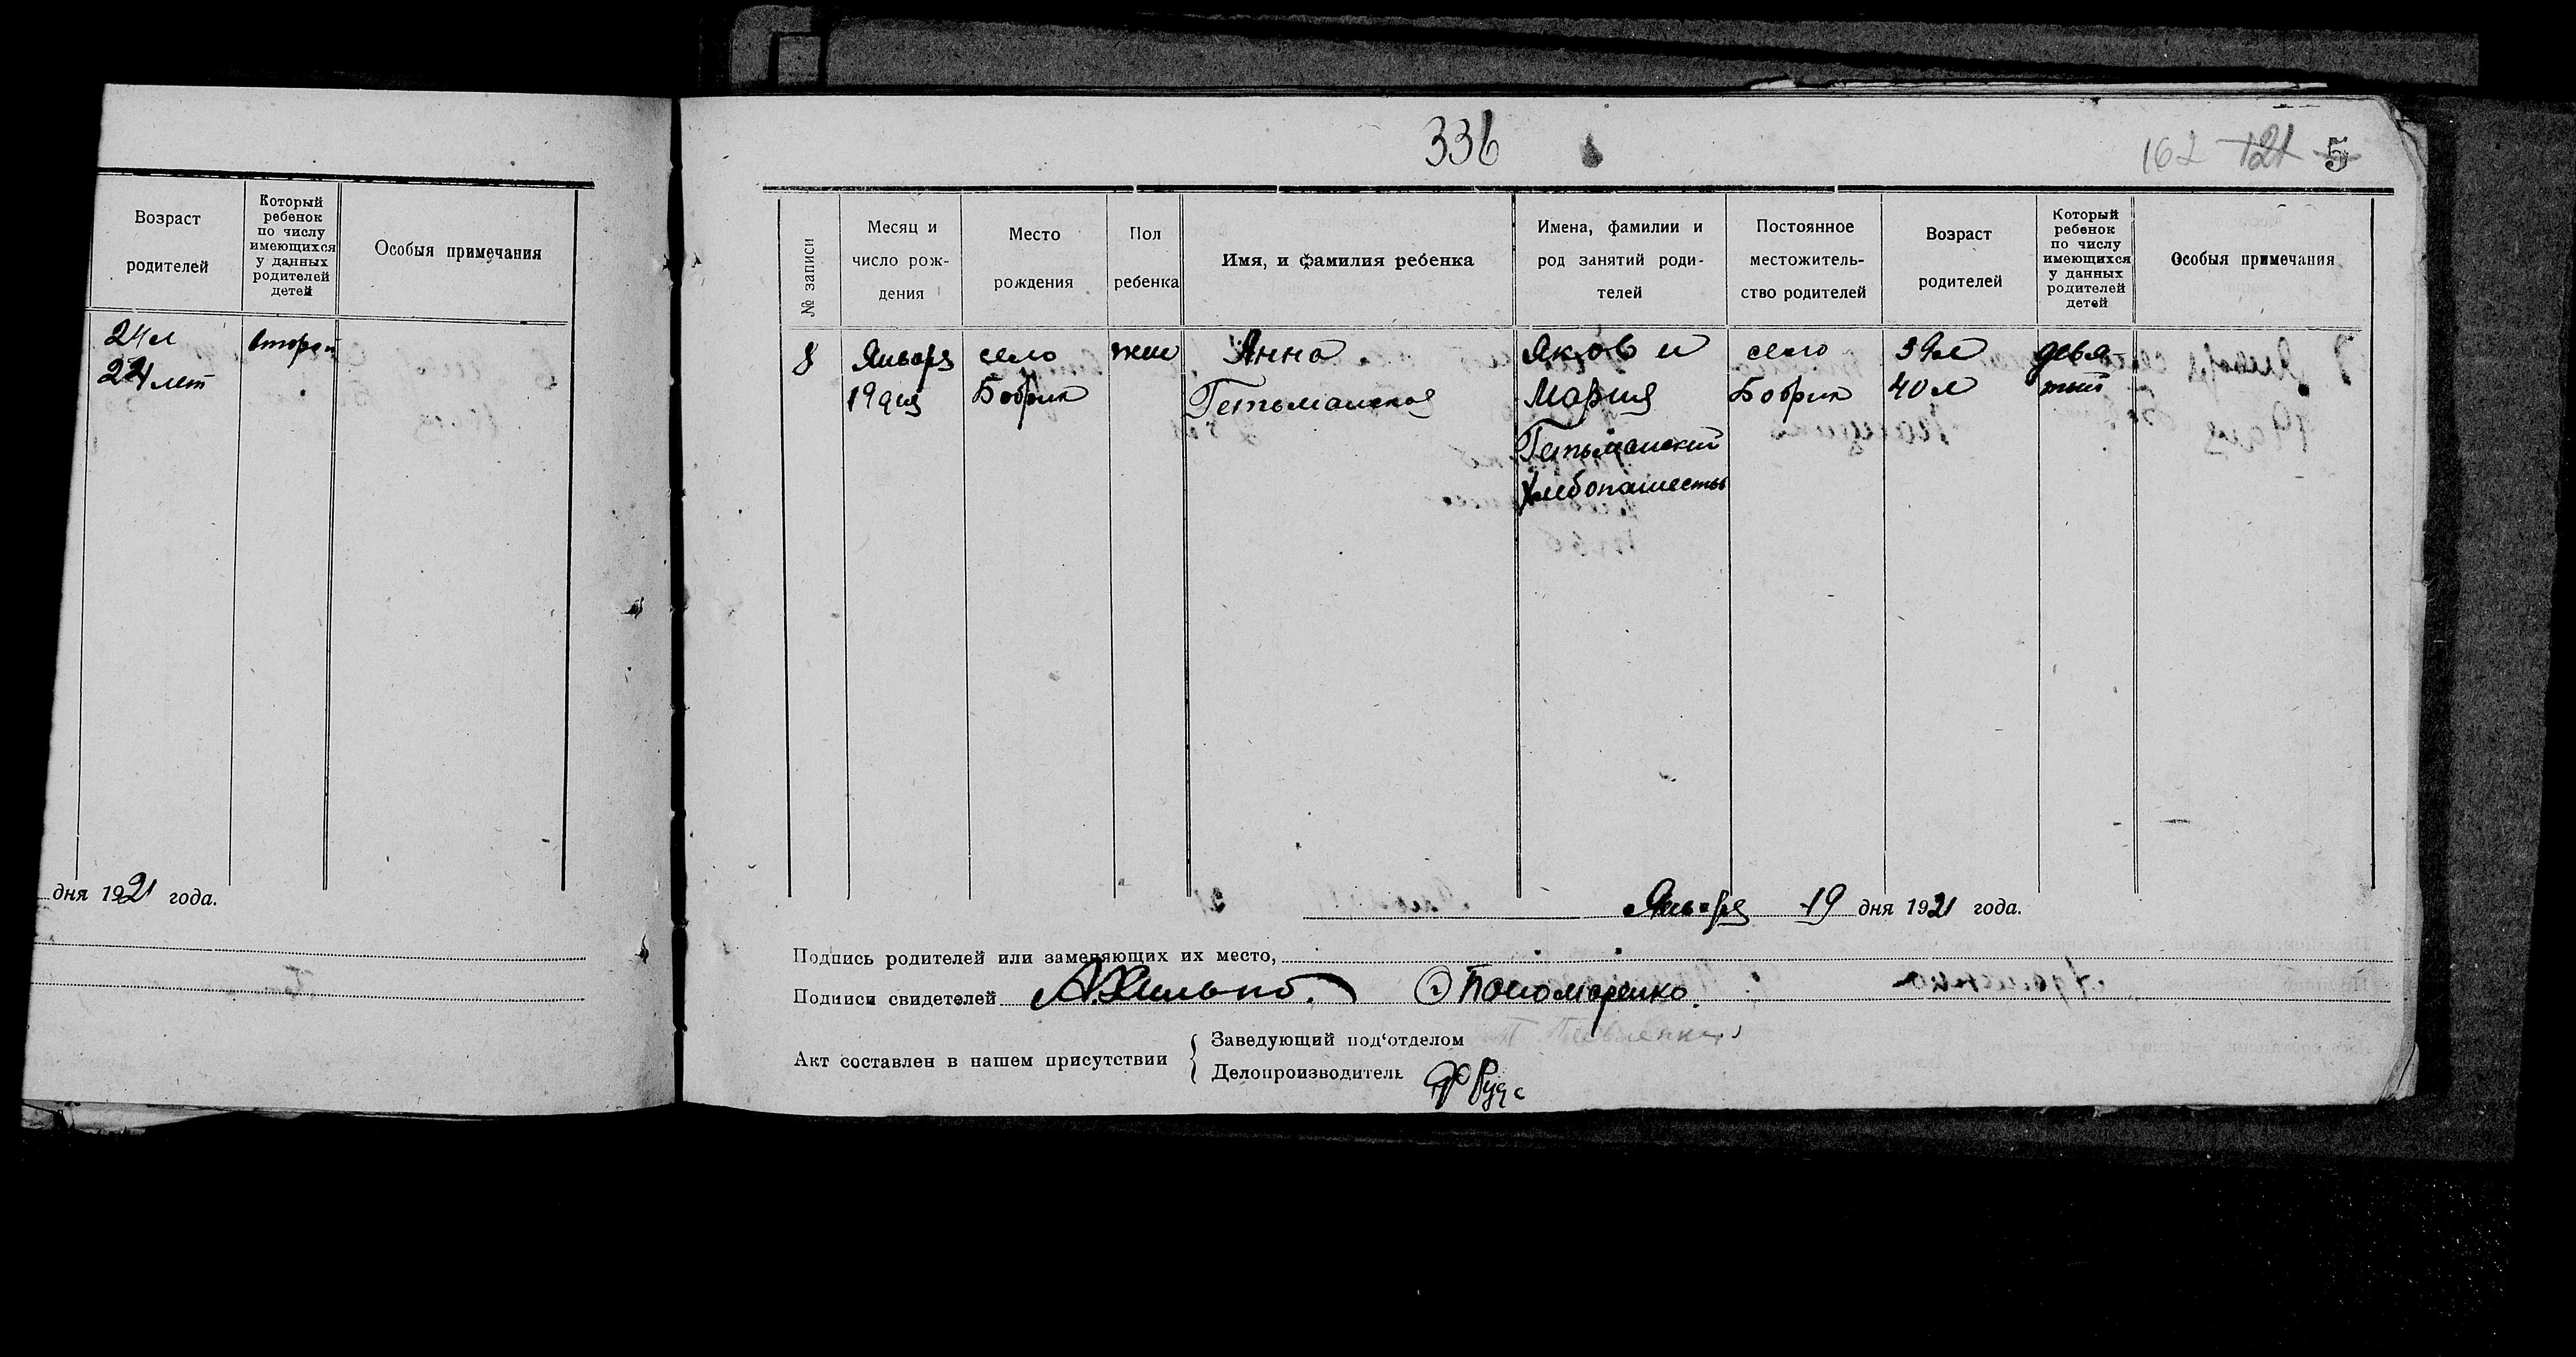 Возраст
родителей
Который
ребенок
по числу
имеющихся
у данных
родителей
детей
Особыя примечания
24 л
24 лет
второй
дня 1921 года.
336
162 121 5
№ записи
Месяц и
число рож-
дения
Место
рождения
Пол
ребенка
Имя, и фамилия ребенка
Имена, фамилии и
род занятий роди-
телей
Постоянное
местожитель-
ство родителей
Возраст
родителей
Который
ребенок
по числу
имеющихся
у данных
родителей
детей
Особыя примечания
8
Января
19 дня
село
Бобрик
жен
Анна
Гетьманская
Яков и
Мария
Гетьманский
Хлебопашество
село
Бобрик
39 л
40 л
девя
тый
Января 19 дня 1921 года.
Подпись родителей или заменяющих их место,
Подписи свидетелей А. Хилько. Пономаренко.
Акт составлен в нашем присутствии
Заведующий под'отделом
Делопроизводитель